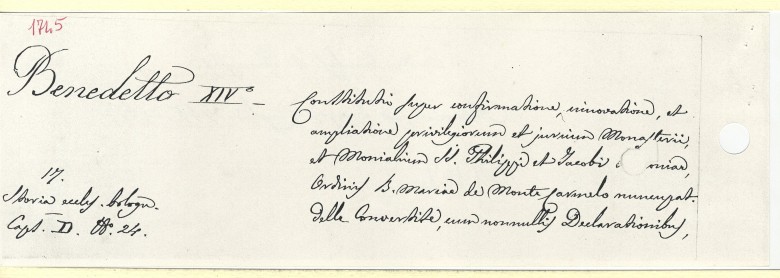 1745
Benedetto XIV° —
Constitutio super confirmatione, innovatione, et
ampliatione privilegiorum et jurium Monasterii,
et Monialium SS. Philippi et Jacobi
Ordinis B. Mariae de Monte Carmelo nuncupat.
delle Convertite, cum nonnullis Declarationibus,
17.
Storia eccles. bologn.
Capt. D. N°. 24.